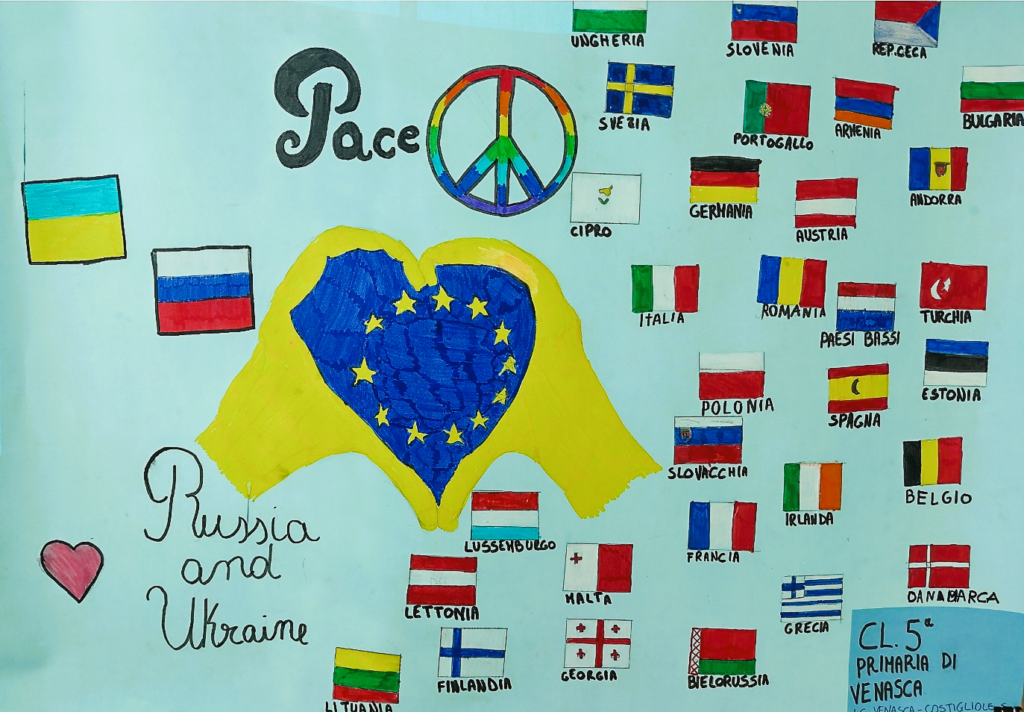 Pace
UNGHERIA
SLOVENIA
REP.CECA
SVEZIA
PORTOGALLO
ARMENIA
BULGARIA
CIPRO
GERMANIA
AUSTRIA
ANDORRA
ITALIA
ROMANIA
PAESI BASSI
TURCHIA
POLONIA
SPAGNA
ESTONIA
SLOVACCHIA
IRLANDA
BELGIO
Russia
and
Ukraine
LUSSEMBURGO
FRANCIA
LETTONIA
MALTA
GRECIA
DANIMARCA
FINLANDIA
GEORGIA
BIELORUSSIA
LITUANIA
CL. 5ª
PRIMARIA DI
VENASCA
I.C. VENASCA-COSTIGLIOLE